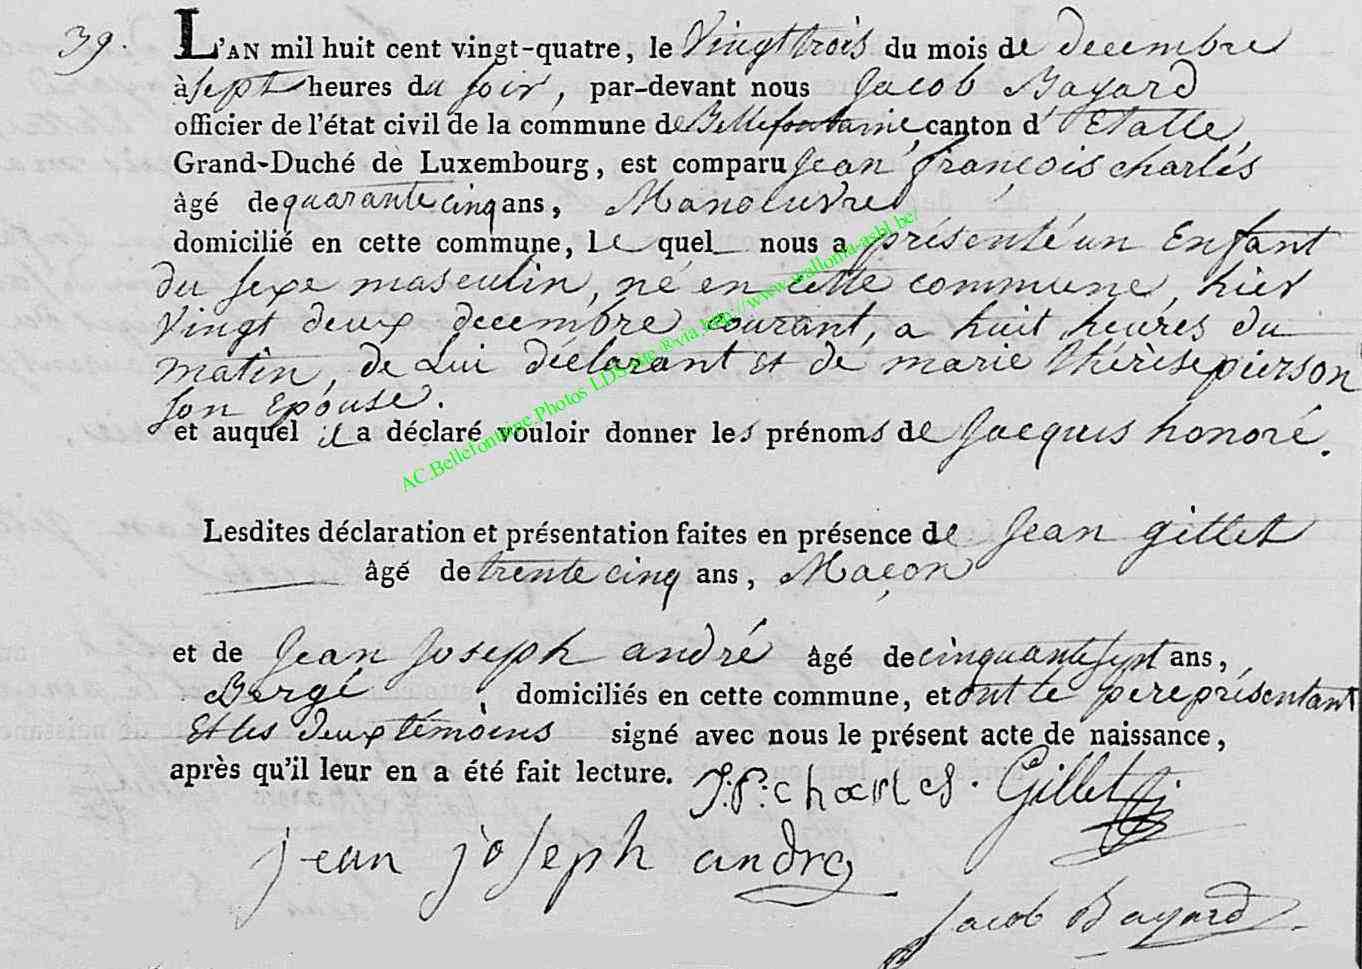 39. L'AN mil huit cent vingt-quatre, le Vingt trois du mois de decembre
à sept heures du soir, par-devant nous Jacob Bayard
officier de l'état civil de la commune de Bellefontaine, canton d'Etalle,
Grand-Duché de Luxembourg, est comparu Jean françois charles
âgé de quarante cinq ans, Manoeuvre
domicilié en cette commune, le quel nous a présenté un Enfant
du sexe masculin, né en cette commune, hier
Vingt deux decembre courant, a huit heures du
matin, de Lui déclarant et de marie thérèse pierson
son Epouse.
et auquel il a déclaré vouloir donner les prénoms de Jacques honoré.
AC.Bellefontaine.Photos LDS via http://www.wallonia-asbl.be/
Lesdites déclaration et présentation faites en présence de Jean gillet
âgé de trente cinq ans, Maçon
et de Jean Joseph andré âgé de cinquante sept ans,
Bergé domiciliés en cette commune, et ont le pere présentant
Et les deux témoins signé avec nous le présent acte de naissance,
après qu'il leur en a été fait lecture. J: P: charles. Gillet
jean joseph andre
Jacob Bayard